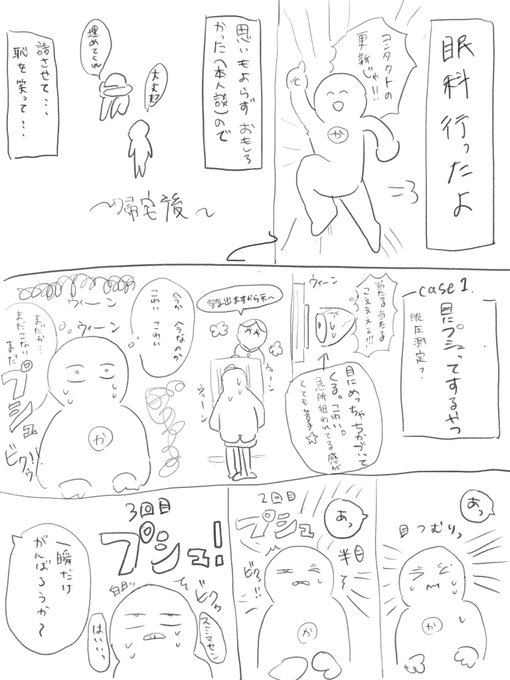 眼科行ったよ
コンタクトの
更新じゃ!!
か
思いもよらず おもしろ
かった(本人談)ので
大丈夫?
埋めてくれ
話させて...
恥を笑って...
〜帰宅後〜
case 1.
目にプシュってするやつ
眼圧測定?
ウィーン
当たる当たる
こえええぇ!!!
目にめっちゃちかづいて
くる。こわい。
急所狙われてる感が
とても苦手☆
空気出ますから〜
ウィーン
ウィーン
今か 今なのか
こわい こわい
ウィーン
ウィーン
まだか...
まだこない
まだ
プシュ
ビクゥッ
か
あっ
目つむりっ
か
2回目
プシュ
あっ
半目
ビクッ!!
か
3回目
プシュ!
ビクゥ
スミマセン
白目
はいぃっ
一瞬だけ
がんばろうか〜